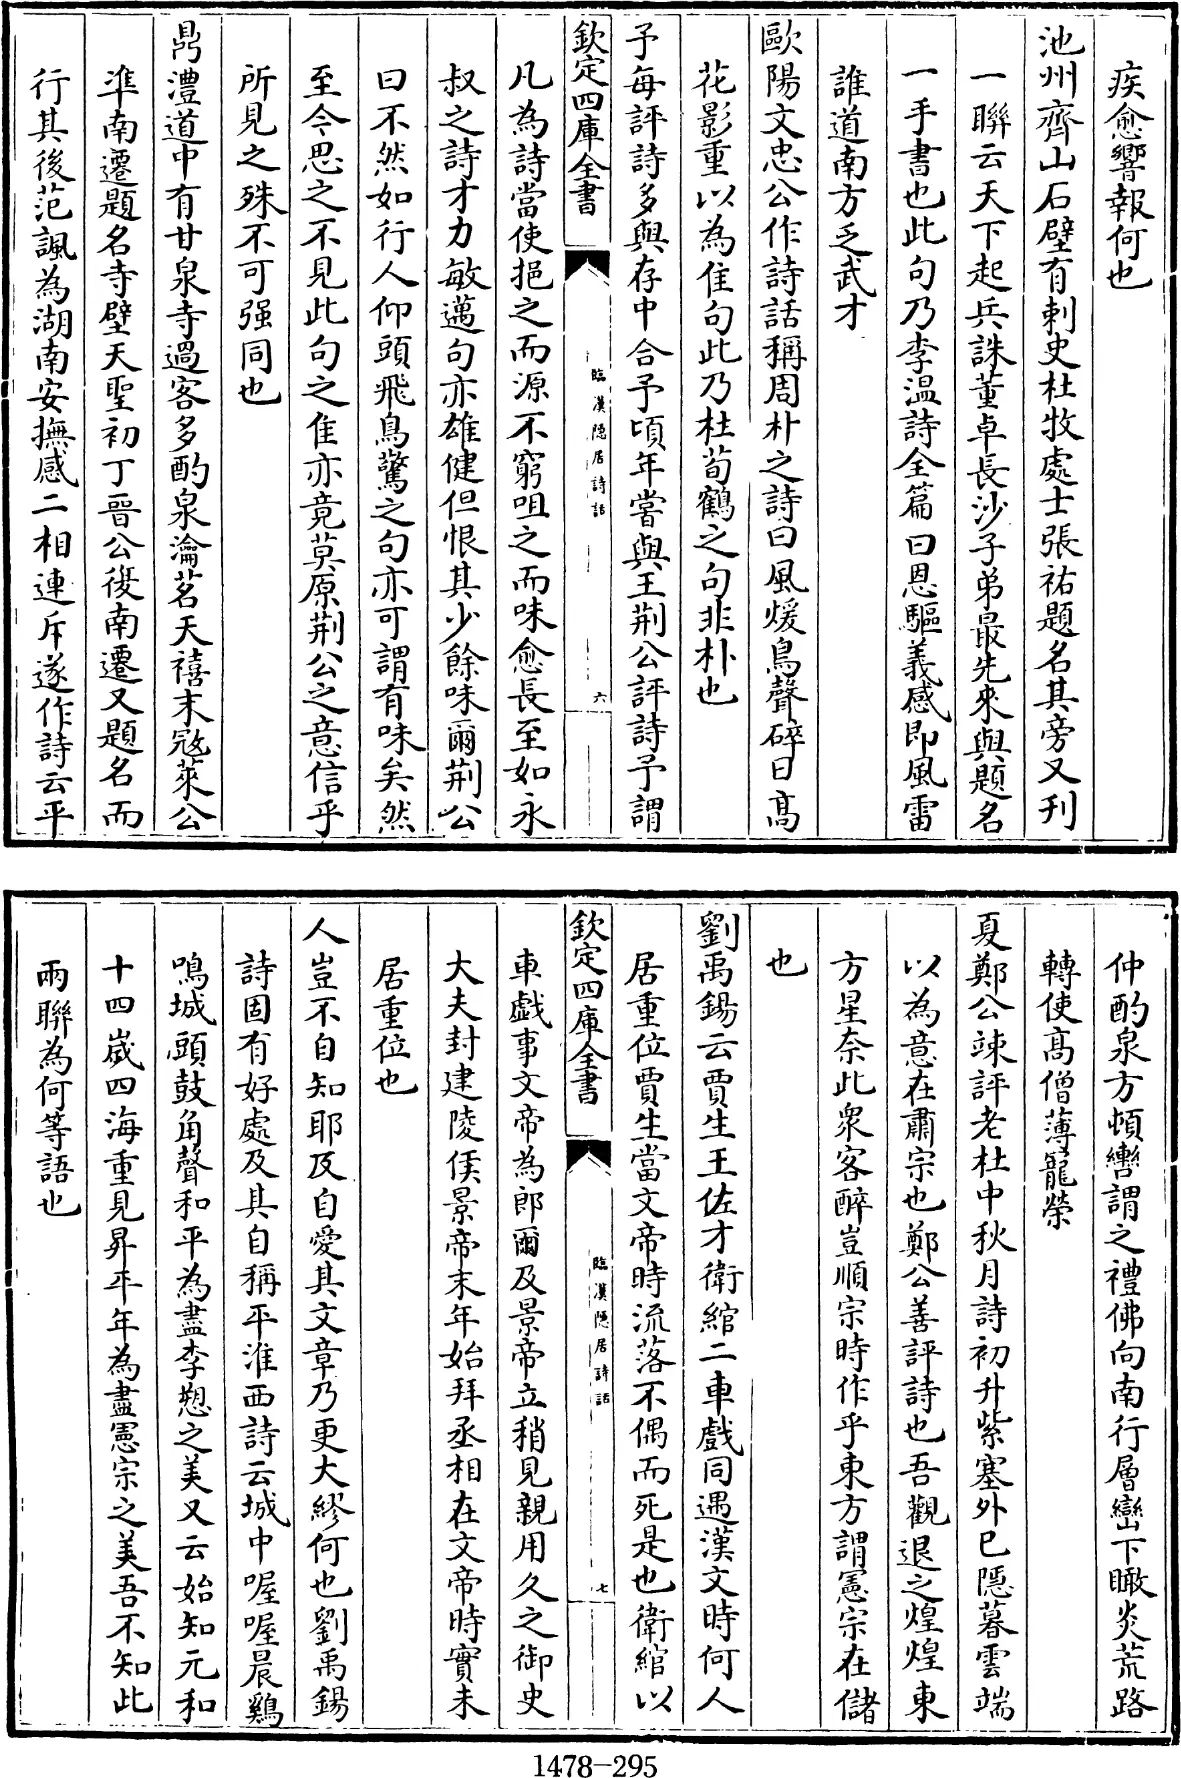 疾愈響報何也
池州齊山石壁有刺史杜牧處士張祐題名其旁又刋
一聯云天下起兵誅董卓長沙子弟最先來與題名
一手書也此句乃李溫詩全篇曰恩驅義感即風雷
誰道南方乏武才
歐陽文忠公作詩話稱周朴之詩曰風煖鳥聲碎日髙
花影重以為佳句此乃杜荀鶴之句非朴也
予每評詩多與存中合予頃年嘗與王荆公評詩予謂
欽定四庫全書
臨漢隠居詩話
六
凡為詩當使挹之而源不窮咀之而味愈長至如永
叔之詩才力敏邁句亦雄健但恨其少餘味爾荆公
曰不然如行人仰頭飛鳥驚之句亦可謂有味矣然
至今思之不見此句之佳亦竟莫原荆公之意信乎
所見之殊不可强同也
鼎澧道中有甘泉寺過客多酌泉瀹茗天禧末宼萊公
凖南遷題名寺壁天聖初丁晉公復南遷又題名而
行其後范諷為湖南安撫感二相連斥遂作詩云平
仲酌泉方頓轡謂之禮佛向南行層巒下瞰炎荒路
轉使髙僧薄寵榮
夏鄭公竦評老杜中秋月詩初升紫塞外已隠暮雲端
以為意在肅宗也鄭公善評詩也吾觀退之煌煌東
方星奈此衆客醉豈順宗時作乎東方謂憲宗在儲
也
劉禹錫云賈生王佐才衛綰工車戲同遇漢文時何人
居重位賈生當文帝時流落不偶而死是也衛綰以
欽定四庫全書
臨漢隠居詩話
七
車戲事文帝為郎爾及景帝立稍見親用久之御史
大夫封建陵侯景帝末年始拜丞相在文帝時實未
居重位也
人豈不自知耶及自愛其文章乃更大繆何也劉禹錫
詩固有好處及其自稱平淮西詩云城中喔喔晨鷄
鳴城頭鼓角聲和平為盡李愬之美又云始知元和
十四歳四海重見昇平年為盡憲宗之美吾不知此
兩聯為何等語也
1478-295